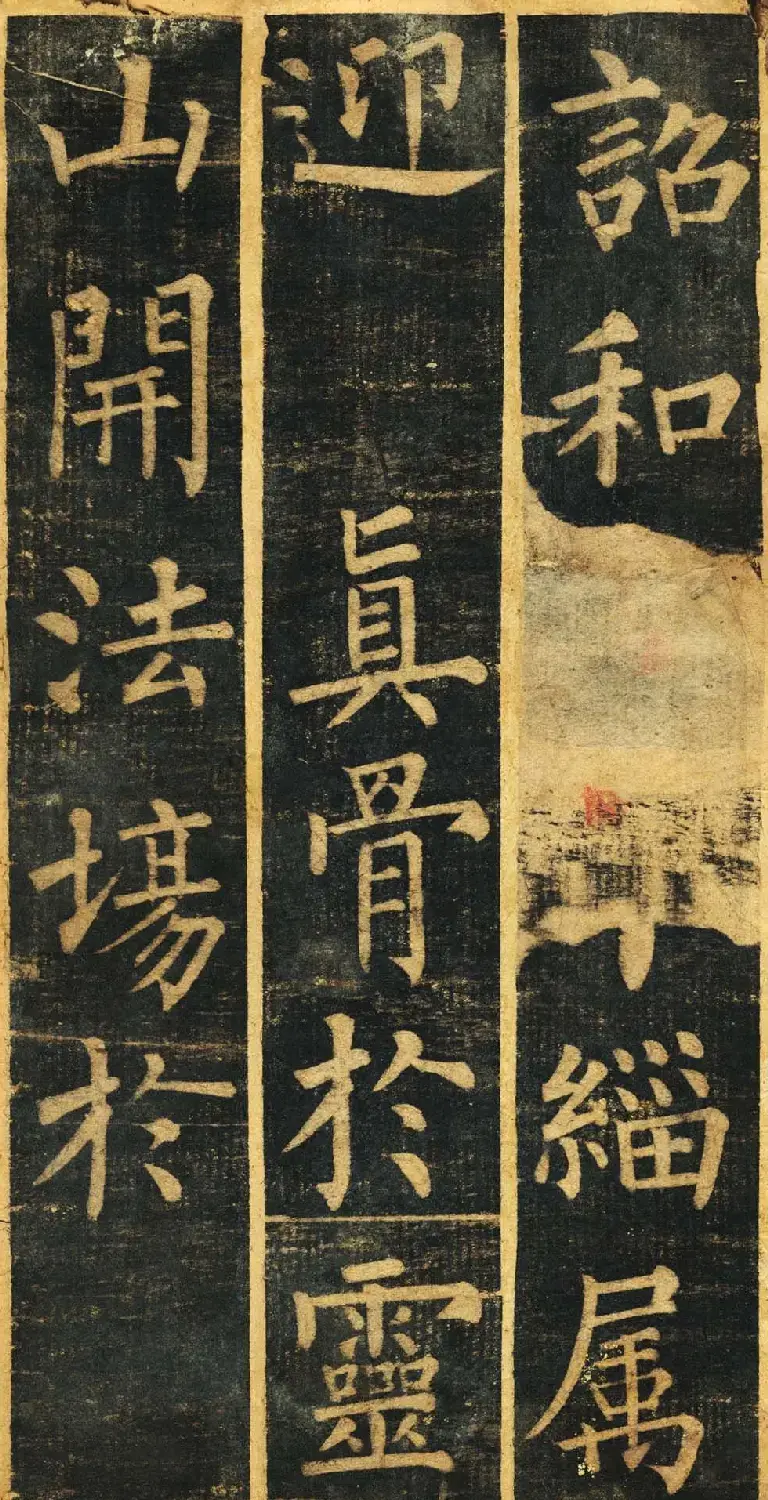 詔和緇属
迎眞骨於靈
山開法場於